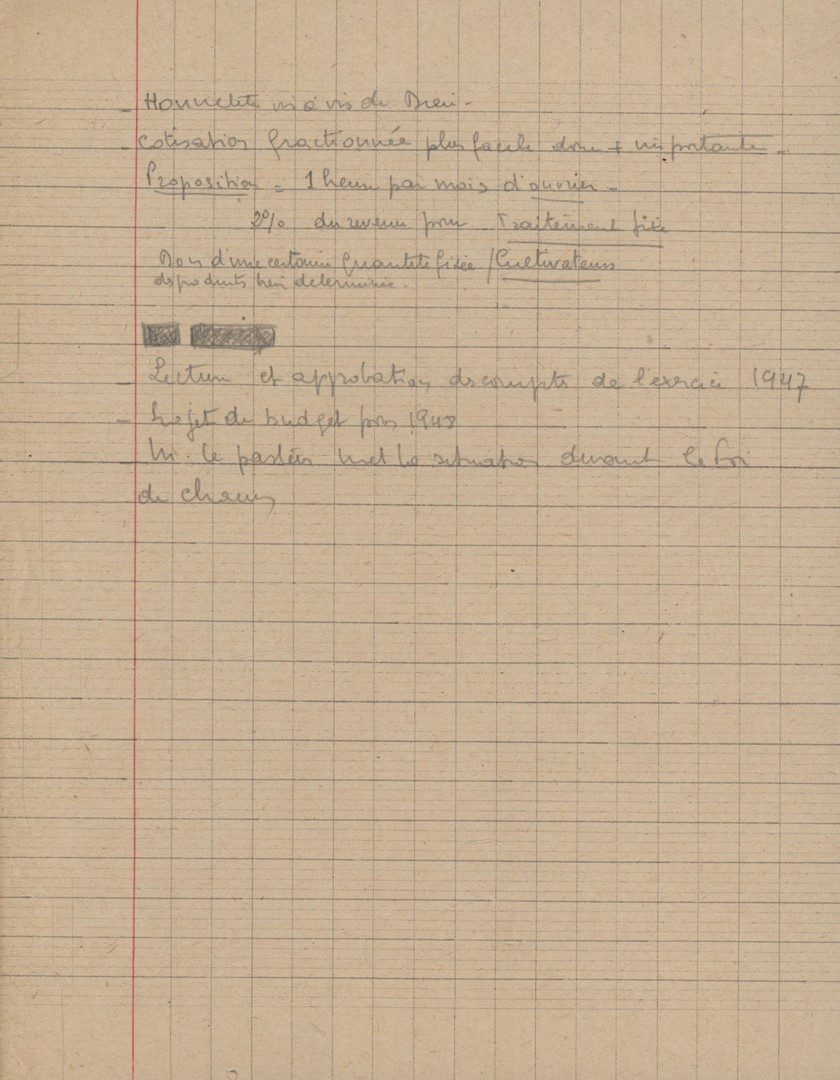 - Honnêteté vis à vis de Dieu -
- Cotisation fractionnée plus facile donc + importante -
Proposition = 1 heure par mois d'ouvrier -
2% du revenu pour Traitement fixe
Don d'une certaine quantité fixée / Cultivateurs
des produits bien déterminée.
- Lecture et approbation des comptes de l'exercice 1947
- Projet de budget pour 1948
- M. le pasteur met la situation devant la foi
de chacun